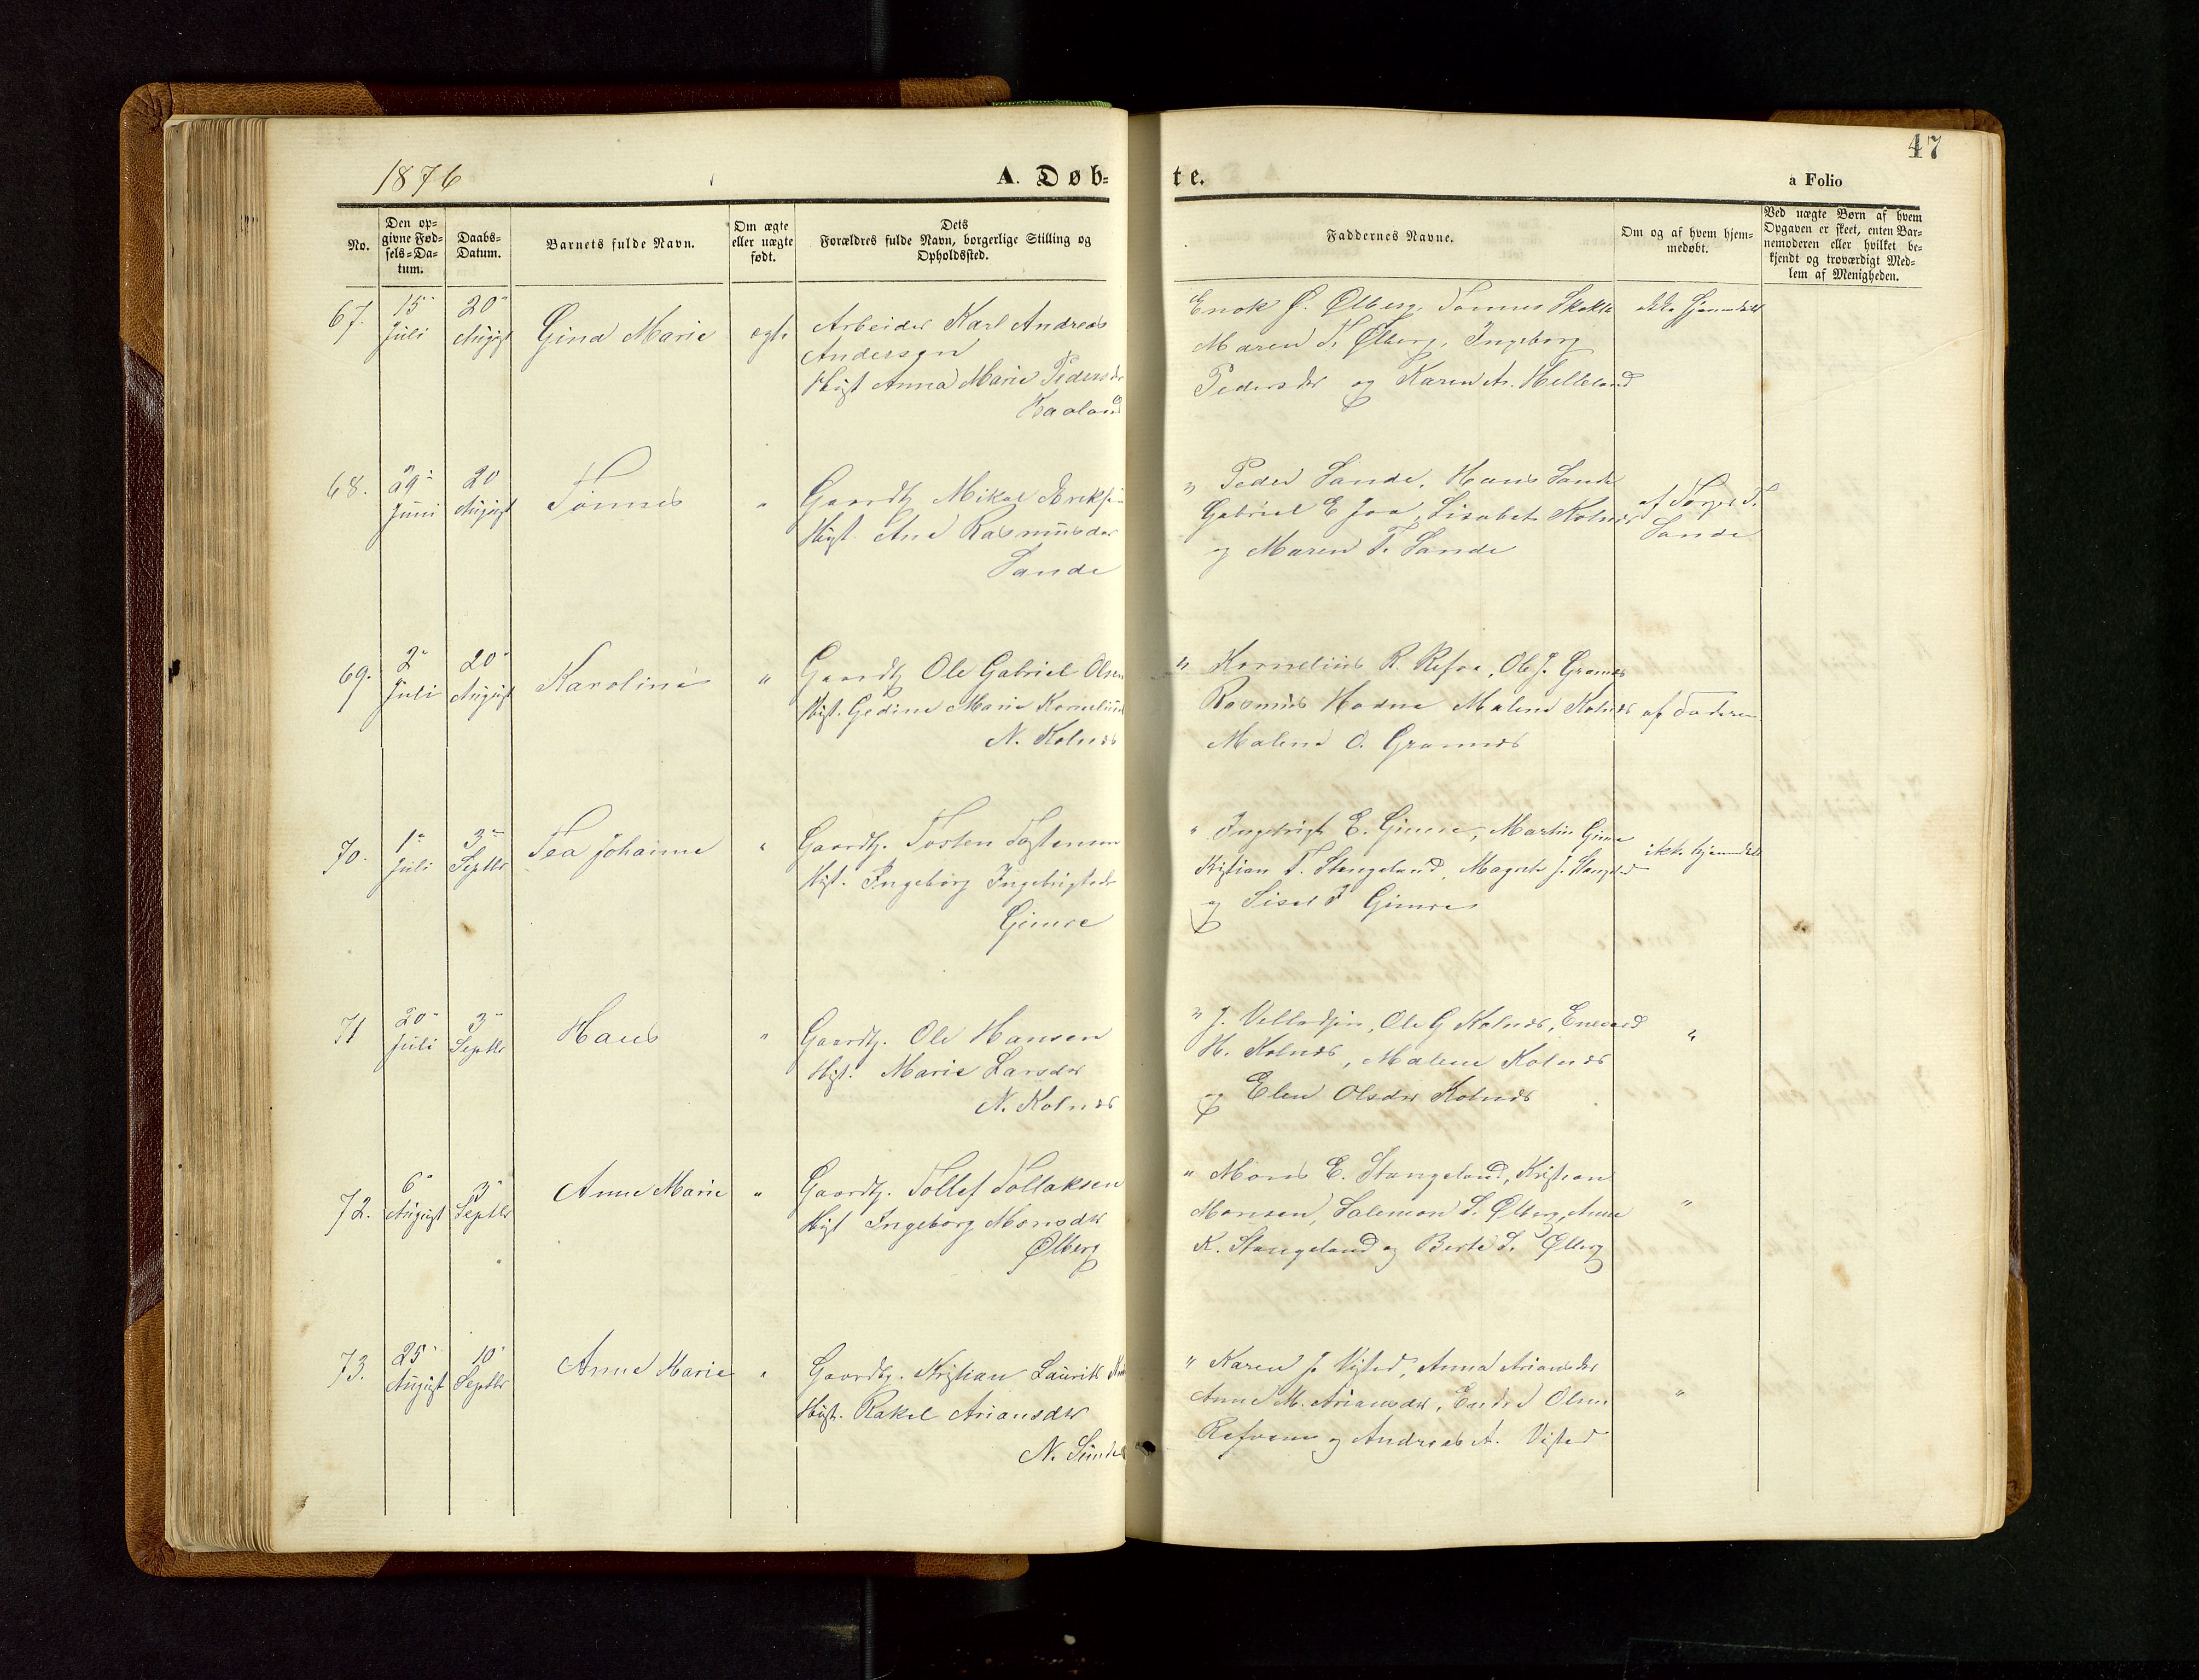 47
1876
A. Døb-
te.
a Folio
No.
Den op-
givne Fød-
sels-Da-
tum.
Daabs-
Datum.
Barnets fulde Navn.
Om ægte
eller uægte
født.
Dets
Forældres fulde Navn, borgerlige Stilling og
Opholdssted.
Faddernes Navne.
Om og af hvem hjem-
medøbt.
Ved uægte Børn af hvem
Opgaven er skeet, enten Bar-
nemoderen eller hvilket be-
kjendt og troværdigt Med-
lem af Menigheden.
67.
15
Juli
20
August
Gina Marie
ægte
Arbeider Karl Andreas
Andersen
Hust Anna Marie Pedersdr
Haaland
Enok Ølberg, Tønnes
Maren T. Ølberg, Ingeborg
Pedersdr og Karen A. Helleland
ikke hjemdøbt
68.
29
Juni
20
August
Tønnes
"
Gaardb Mikal Eriksen
Hust. Ane Rasmusdr
Sande
" Peder Sande, Hans Sande
Gabriel E Joa, Lisabet Kolnæs
og Maren T. Sande
af Torger T.
Sande
69.
2
Juli
20
August
Karoline
"
Gaardb Ole Gabriel Olsen
Hust. Gedine Marie Kornelius
N. Kolnæs
" Kornelius R. Refve, Ole J. Grannæs
Rasmus Hodne Malene Kolnæs
Malene O. Grannæs
af Faderen
70.
1
Juli
3
Septbr
Tea Johanne
"
Gaardb. Tosten Tostensen
Hust. Ingeborg Ingebrigtsdr
Gimre
" Ingebrigt E. Gimre, Martin Gimre
Kristian T. Stangeland, Magrete J. Stangeland
og Sisel Gimre
ikke hjemdøbt
71
20
Juli
3
Septbr
Hans
"
Gaardb. Ole Hansen
Hust. Marie Larsdr
N. Kolnæs
" J. Ole G Kolnæs, Enevald
H. Kolnæs, Malene Kolnæs
og Elen Olsdr Kolnæs
"
72.
6
August
3
Septbr
Anne Marie
"
Gaardb. Tollef Tollaksen
Hust Ingeborg Monsdr
Ølberg
" Mons E. Stangeland, Kristian
Monsen, Salemon S. Ølberg, Anne
K. Stangeland og Berte S. Ølberg
"
73.
25
August
10
Septbr
Anne Marie
"
Gaardb. Kristian Laurits
Hust. Rakel Ariansdr
N. Sunde
" Karen J. Visted, Anna Ariansdr
Anne M. Ariansdr, Endre Olsen
og Andreas A. Visted
"